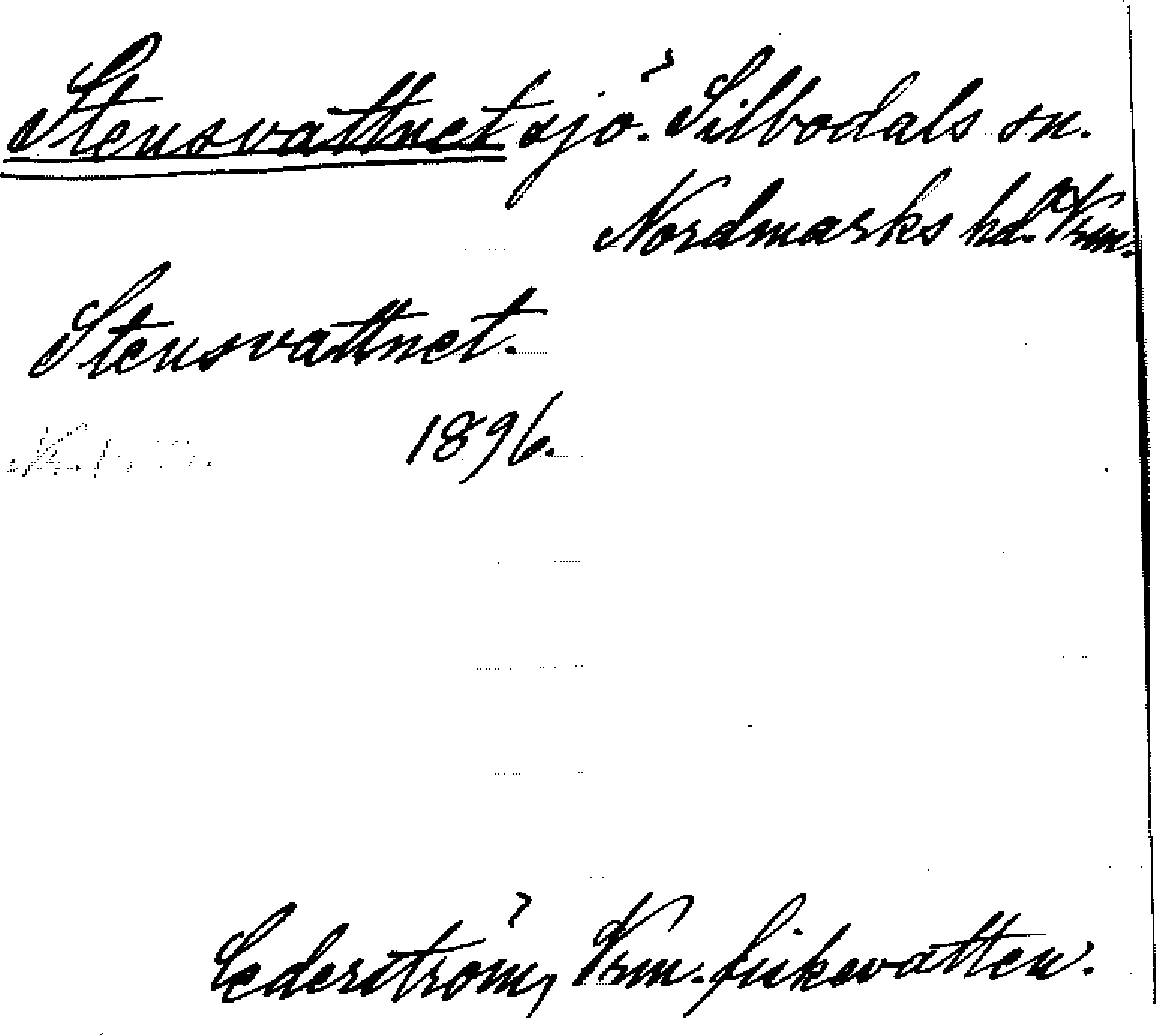 Stensvattnet sjö. Silbodals sn.
Nordmarks hd. Vrm.
Stensvattnet.
1896.
Cederström, Vrm. fiskevatten.